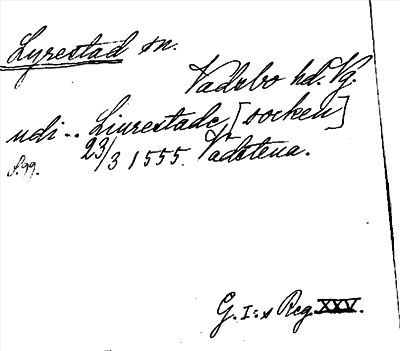 Lyrestad sn.
Vadsbo hd. Vg.
udi .. Liurestade, [socken]
s. 99. 23/3 1555. Vadstena.
G. I:s Reg. XXV.